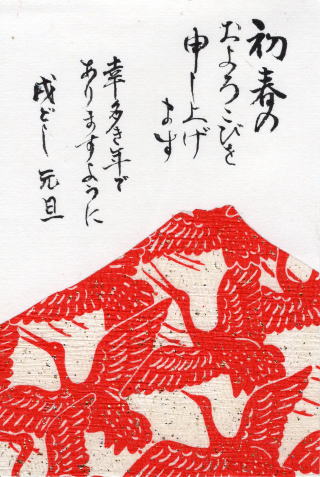 初春の
およろこびを
申し上げ
ます
幸多き年で
ありますように
戌どし 元旦